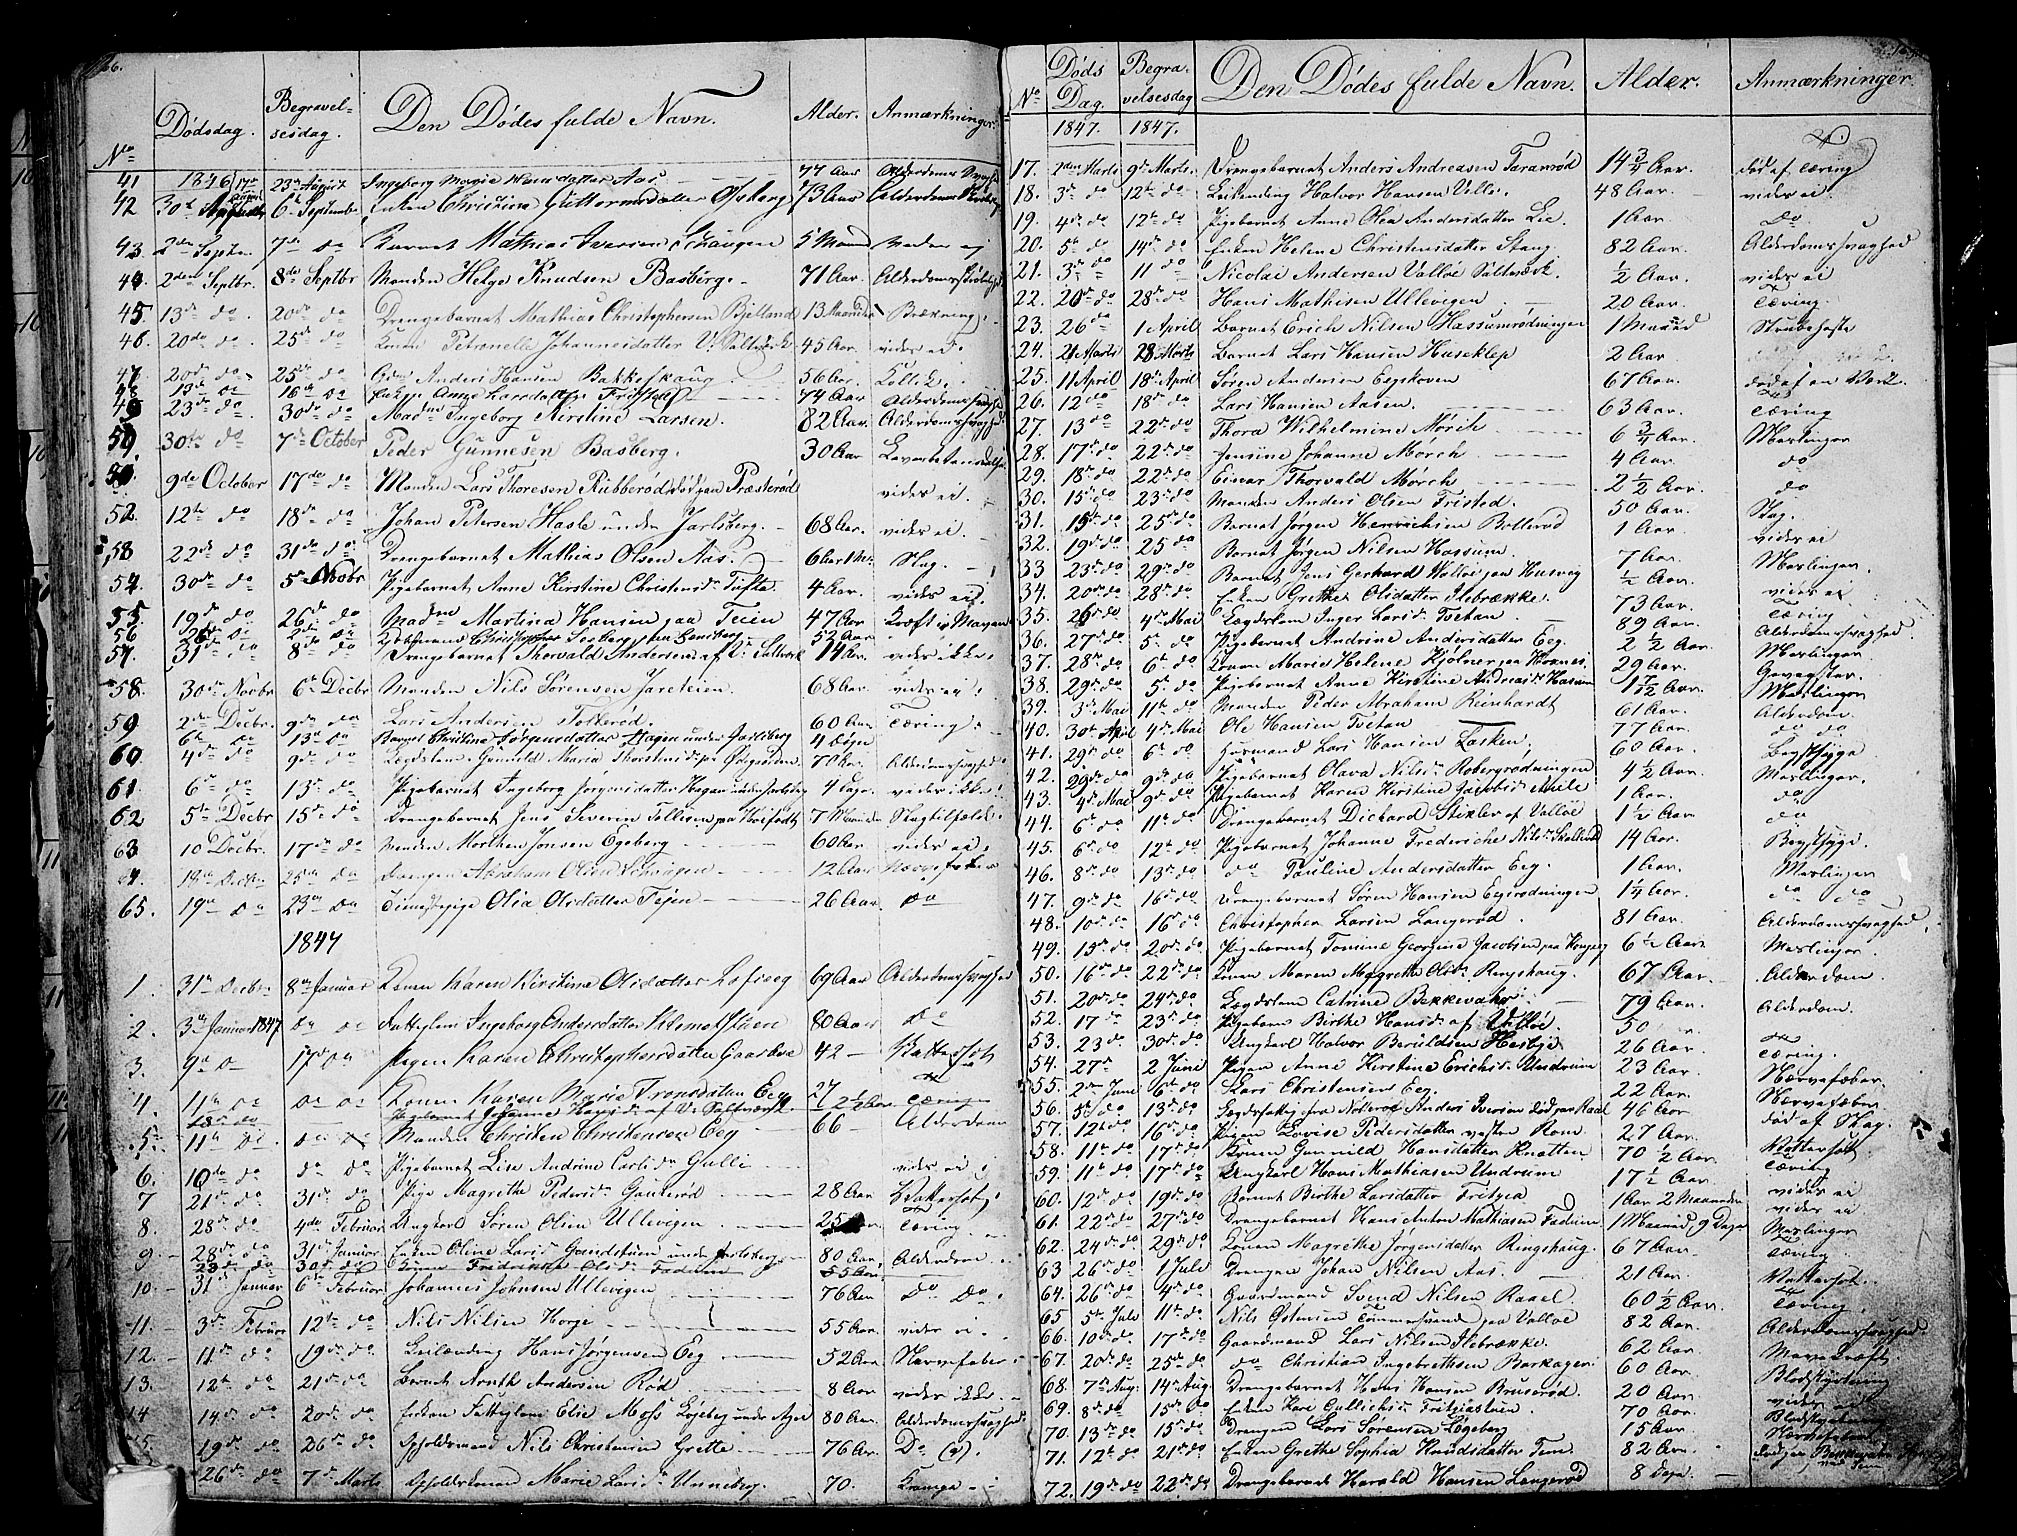 66.
No
Dødsdag.
Begravelsesdag.
Den Dødes fulde Navn.
Alder.
Anmærkninger.
41 1846 17de August 23de August Ingeborg Marie Hansdatter Aas 77 Aar Alderdoms Svaghed
42 30te August 6te September Enken Christine Guttormsdatter 73 Aar Alderdoms
43 2den Septbr. 7de do Barnet Mathias Iversen Schaugen 5 Maaned
44 2den Septbr. 8de Septbr Manden Helge Knudsen Basberg 71 Aar.
45 13de do. 20de do Drengebarnet Mathias Christophersen Bjelland 13 Maaneder Brækning.
46. 20de do. 25de do Konen Petronelle Johannesdatter V. Saltværk 45 Aar. vides ei.
47 20de do 25de do Anders Hansen Bakkeskaug 56 Aar. Kolik.
48 13de do 16de do Anne Larsdatter 74 Aar Alderdomssvaghed
49 23de do. 30de do Madm Ingeborg Kirstine Larsen. 82 Aar. Alderdomssvaghed
50 30te do 7de October Peder Gunnesen Basberg. 30 Aar
51. 9de October 17de do Manden Lars Thoresen Rubberød død paa Præsterød vides ei.
52. 12te do 18de do Johan Petersen Hasle under Jarlsberg. 68 Aar. vides ei.
53 22de do 31de do Drengebarnet Mathias Olsen Aas. 6 Aar 1 M. Slag.
54. 30de do 5te Novbr Pigebarnet Anne Kirstine Christensd. Tufte 4 Aar. vides ei.
55. 19de do 26de do Madm Martina Hansen paa Teien 47 Aar Kræft i Maven
56 26de do 2de do Christopher 52 Aar
57. 31de do 8de do Drengebarnet Thorvald Andersen af V. Saltværk 14 Aar. vides ikke.
58. 30de Novbr 6te Decbr Manden Nils Sørensen Jareteien. 68 Aar vides ei.
59 2den Decbr. 9de do Lars Andersen Tolkerød. 60 Aar Tæring.
6te do 13de do Barnet Christine Jørgensdatter Hagen under Jarlsberg 4 Døgn
60. 4de do 9de do Lægdslem Gunnild Maria Thorstensd. 70 Aar. Alderdomssvaghed
61 6te do 13de do Pigebarnet Ingeborg Jørgensdatter Hagen under Jarlsberg 4 Dage vides ikke.
62 5te Decbr 15de do Drengebarnet Jens Severin Tellisen paa 7 Maaneder Slagtilfælde
63 10 Decbr. 17de do Manden Morthen Jonsen Egeberg 60 Aar vides ei.
64. 18de Decbr. 25de do Drengen Abraham Olsen 12 Aar Nervefeber
65. 19de do 23de do Tjenestepige Olia Olsdatter Teien 26 Aar. do
1847
1. 31te Decbr. 8de Januar Konen Karen Kirstine Olsdatter Lofseeg 69 Aar Alderdomssvaghed
2. 3de Januar 1847 do do Fattiglem Ingeborg Andersdatter 80 Aar do
3. 9de do 17de do Pigen Karen Christophersdatter Gaarboe 42 Vattersot
4. 11te do do do Konen Karen Marie Tronsdatter Eeg 27 Tæring
28de do Pigebarnet Johanne Hansd. af V. Saltværk 2½ Aar
5. 11te do. do do Manden Christen Christensen Eeg 66 Alderdom
6. 10de do do do. Pigebarnet Lise Andrine Carlsd. Gulli vides ei
7 21de do 31de do Pige Magrethe Pedersd. Gauterød 28 Aar Vattersot.
8. 28de do 4de Februar Ungkarl Søren Olsen Ullevigen 25 Aar. Tæring.
9. 28de do 31de Januar Enken Oline Larsd. under Jarlsberg 80 Aar. Alderdom.
23de do 30de do Konen Fredrikke Olsd. Fadum 55 Aar.
10. 31de Januar 6te Februar Johannes Johnsen Ullevigen 76 Aar do do.
11. 3de Februar 12te do Nils Nilsen Horge 55 Aar. vides ei.
12. 11te do 19de do. Hans Jørgensen Eeg 52 Aar Nervefeber
13. 12te do 21de do Barnet Arnth Andersen Rød 8 Aar vides ikke.
14 14de do 20de do Enken Fattiglem Elie Moss 80 Aar Alderdomssvaghed
15. 19de do 26de do Opholdsmand Nils Christensen Grette 76 Aar. Do
26de do 7de Marts Opholdskonen Marie Larsd. Unneberg. 70. Krampe
No
Døds Dag.
Begravelsesdag
Den Dødes fulde Navn.
Alder.
Anmærkninger.
1847. 1847.
17. 2den Marts 9de Marts Drengebarnet Anders Andreasen Taranrød 14¾ Aar. død af Tæring
18. 3de do 12te do Halvor Hansen Velle. 48 Aar. vides ei
19. 4de do 12te do Pigebarnet Anne Olea Andersdatter Lie 1 Aar. do
20. 5te do 14de do Enken Helene Christensdatter Stang 82 Aar. Alderdomssvaghed
21. 3de do 11 do Nicolai Andersen Valløe Saltværk. ½ Aar. vides ei
22. 20de do 28de do Hans Mathisen Ullevigen 20 Aar. Tæring.
23. 26de do 1 April Barnet Erich Nilsen Hassumrødningen 1 Maaned Strubehoste
24. 21 Marts 28 Marts Barnet Lars Hansen Huseklep 2 Aar.
25. 11 April 18de April Søren Andersen Eegskoven 67 Aar. død af en Vert.
26. 12 do 18de do Lars Hansen Aasen. 63 Aar. Tæring
27. 13 do 22de do Thora Wilhelmine Mørch 6¾ Aar. Meslinger
28. 17de do 22de do Jensine Johanne Mørch 4 Aar. do
29. 18de do 22de do Einar Thorvald Mørch 2½ Aar. do
30. 15de do 23de do Manden Anders Olsen Tristed. 50 Aar. Slag.
31. 15de do 25de do Barnet Jørgen Henrichsen Bollerød 1 Aar. vides ei
32. 19de do 25 do Barnet Jørgen Nilsen Hassum. 7 Aar. Meslinger.
33 23de do 29de do Barnet Jens Gerhard Valløe paa Husvig ½ Aar. vides ei
34. 20de do 28de do Enken Grethe Olsdatter Ilebrække. 73 Aar. Tæring
35. 26 do 4de Mai Lægdslem Inger Larsd. Tvetan. 89 Aar. Alderdomssvaghed.
36. 27de do 5te do Pigebarnet Andrine Andersdatter Eeg. 2½ Aar. Meslinger
37. 28de do 6te do Konen Marie Helene Kjølner paa 29 Aar.
38. 29de do 5te do Pigebarnet Anne Kirstine Andreasd. Hassum 1 7/12 Aar. Meslinger
39. 3de Mai 11te do Manden Peder Abraham Reinhardt 61 Aar. Alderdom.
40. 30te April 4de Mai Ole Hansen Tvetan 77 Aar. do do
41. 29de do 6te do Lars Hansen Lasken 60 Aar. Brystsyge
42. 29de do 9de do Pigebarnet Olava Nilsd. Robergrødningen 4½ Aar. Meslinger.
43. 4de Mai 9de do Pigebarnet Karen Kirstine Jacobsd. 1 Aar. do
44. 6te do 11te do Drengebarnet Dichard Stixler af Valløe 1½ Aar do
45. 6te do 12te do Pigebarnet Johanne Frederiche Nilsd. 14 Aar. Brystsyge
46. 8de do 13de do do Pauline Andersdatter Eeg. 1 Aar. Meslinger
47. 9de do 16de do Drengebarnet Søren Hansen Eegsrødningen 1¼ Aar. do do
48. 10de do 16de do Christopher Larsen Langerød. 81 Aar. Alderdomssvaghed.
49. 15de do 20de do Pigebarnet Tomine Georgine Jacobsen paa 6½ Aar. Meslinger
50. 16de do 22de do Konen Maren Magrethe Olsd. Ringshaug. 67 Aar. Alderdom.
51. 20de do 24de do Lægdslem Catrine Bekkevahr. 79 Aar. Alderdom.
52. 17 do 23de do Pigebarn Birthe Hansd. af Valløe. 50 do
53. 23 do 30de do Ungkarl Halvor Beruldsen Hesbye. 26 Aar. Tæring.
54. 27de 2 Juni Pigen Anne Kirstine Erichsd. Undrum 23 Aar. Nærvefæber.
55. 2den Juni 6te do Lars Christensen Eeg. 22 Aar. Nærvefæber
56. 5te do 13de do fra Nøtterø Anders Iversen død paa Raal 46 Aar død af Slag.
57. 12te do 16de do Pigen Lovise Pedersdatter vestre Rom. 27 Aar. Vattersot.
58. 11te do 17de do Konen Gunnild Hansdatter Knatten 70½ Aar. Tæring
59. 11te do 17de do Ungkarl Hans Mathiasen Undrum 17½ Aar. vides ei
60. 12te do 19de do Barnet Birthe Larsdatter Fritzea 1 Aar 2 Maaneder vides ei
61. 22de do 27de do Drengebarnet Hans Anton Mathiasen Fadum 1 Maaned 9 Dage Meslinger
62. 24de do 29de do Konen Magrethe Jørgensdatter Ringshaug. 67 Aar. Tæring
63 26de do 1 Juli Drengen Johan Nilsen Aas. 21 Aar. Vattersot.
64. 26de do 4de do Gaardmand Svend Nilsen Raael 60½ Aar. Tæring.
65 5te Juli 11te do Nils Østensen Tømmermand paa Valløe 82 Aar. Alderdomssvaghed.
66. 10de do. 17de do Gaardmand Lars Nilsen Ilebrække. 62 Aar. Mavekræft
67. 20de do 25de do do Christian Ingebrethsen Barkager. 60 Aar. Blodstyrtning
68. 7de Aug. 14de Aug. Drengebarnet Hans Hansen Bruserød. 20 Aar. vides ei
69. 8de do 15de do Enken Kari Gullichsd. Fritzeasteen. 70 Aar.
70. 13de do 15de do Drengen Lars Sørensen Løgeberg 15 Aar. Nervefeber
71. 12te do 21de do Enken Grethe Sophia Knudsdatter Tem. 82 Aar.
72. 19de do 22de do Drengebarnet Harald Hansen Langerød 8 Dage